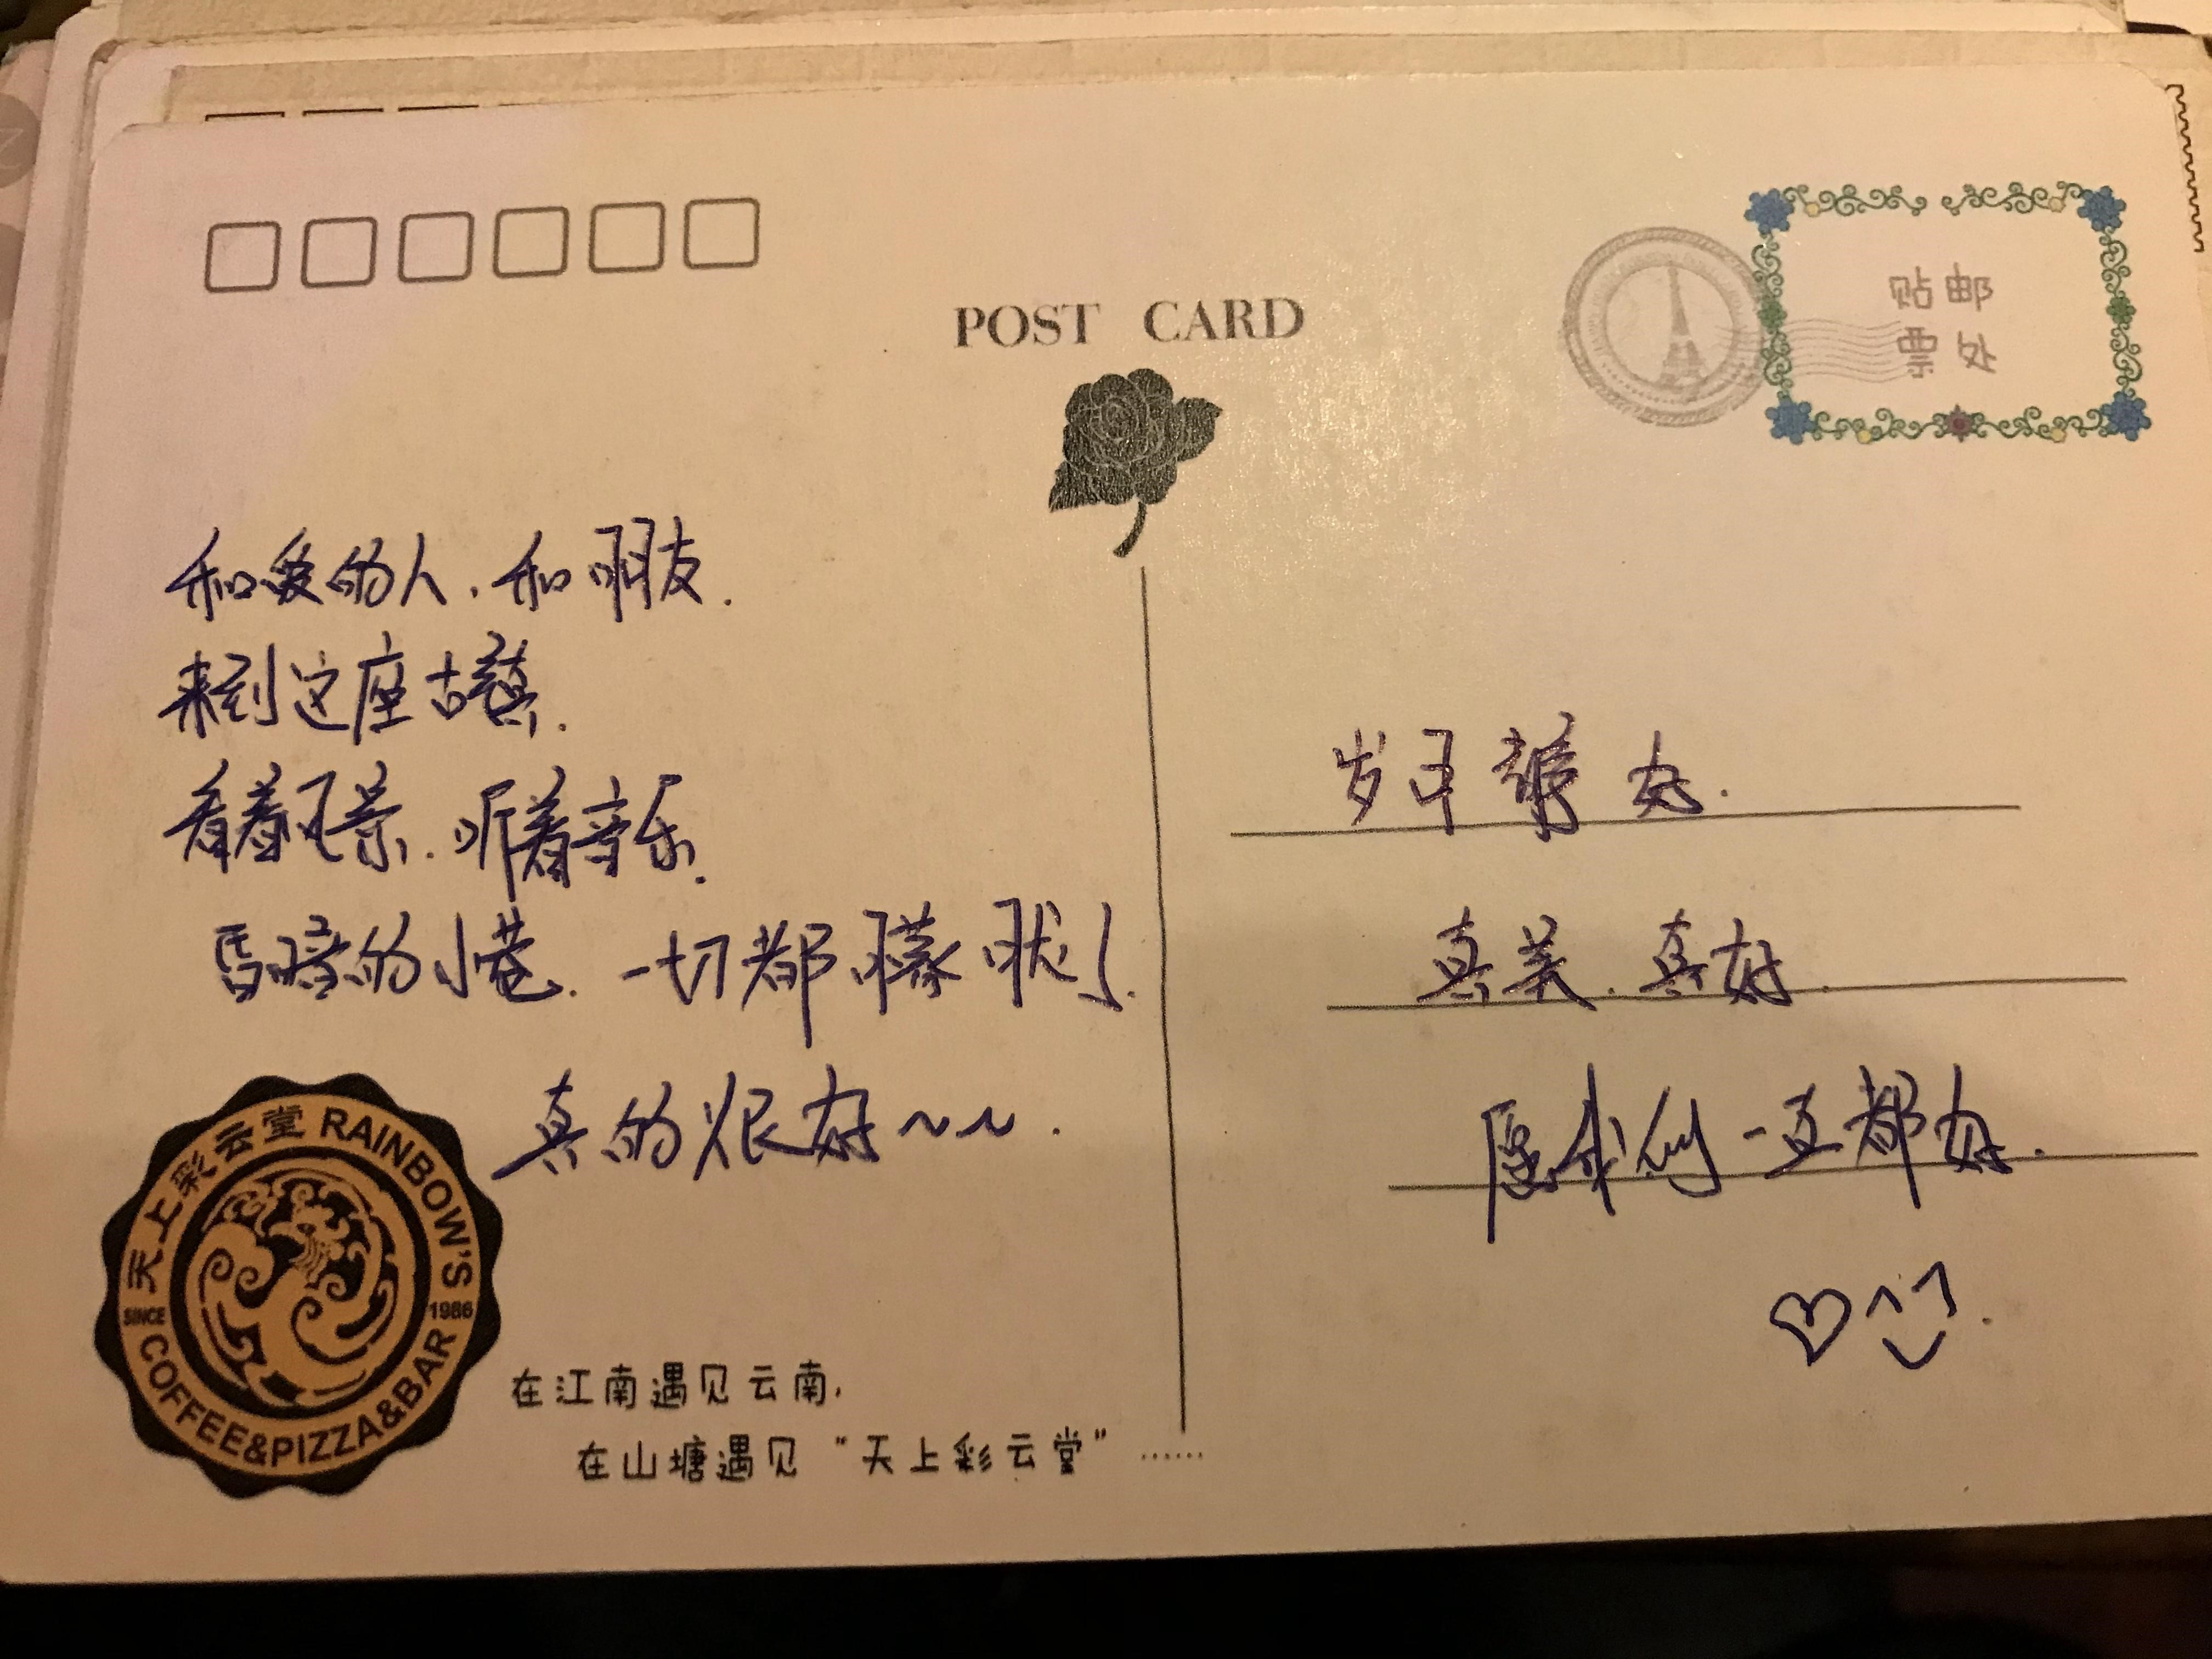 POST CARD
贴邮
票处
和爱的人.和朋友.
来到这座古镇.
看着风景.听着音乐.
昏暗的小巷.一切都朦胧了.
真的很好~~.
岁月静好.
真美.真好.
愿我们一直都好.
天上彩云堂 RAINBOW'S
SINCE 1986
COFFEE&PIZZA&BAR
在江南遇见云南,
在山塘遇见“天上彩云堂”……